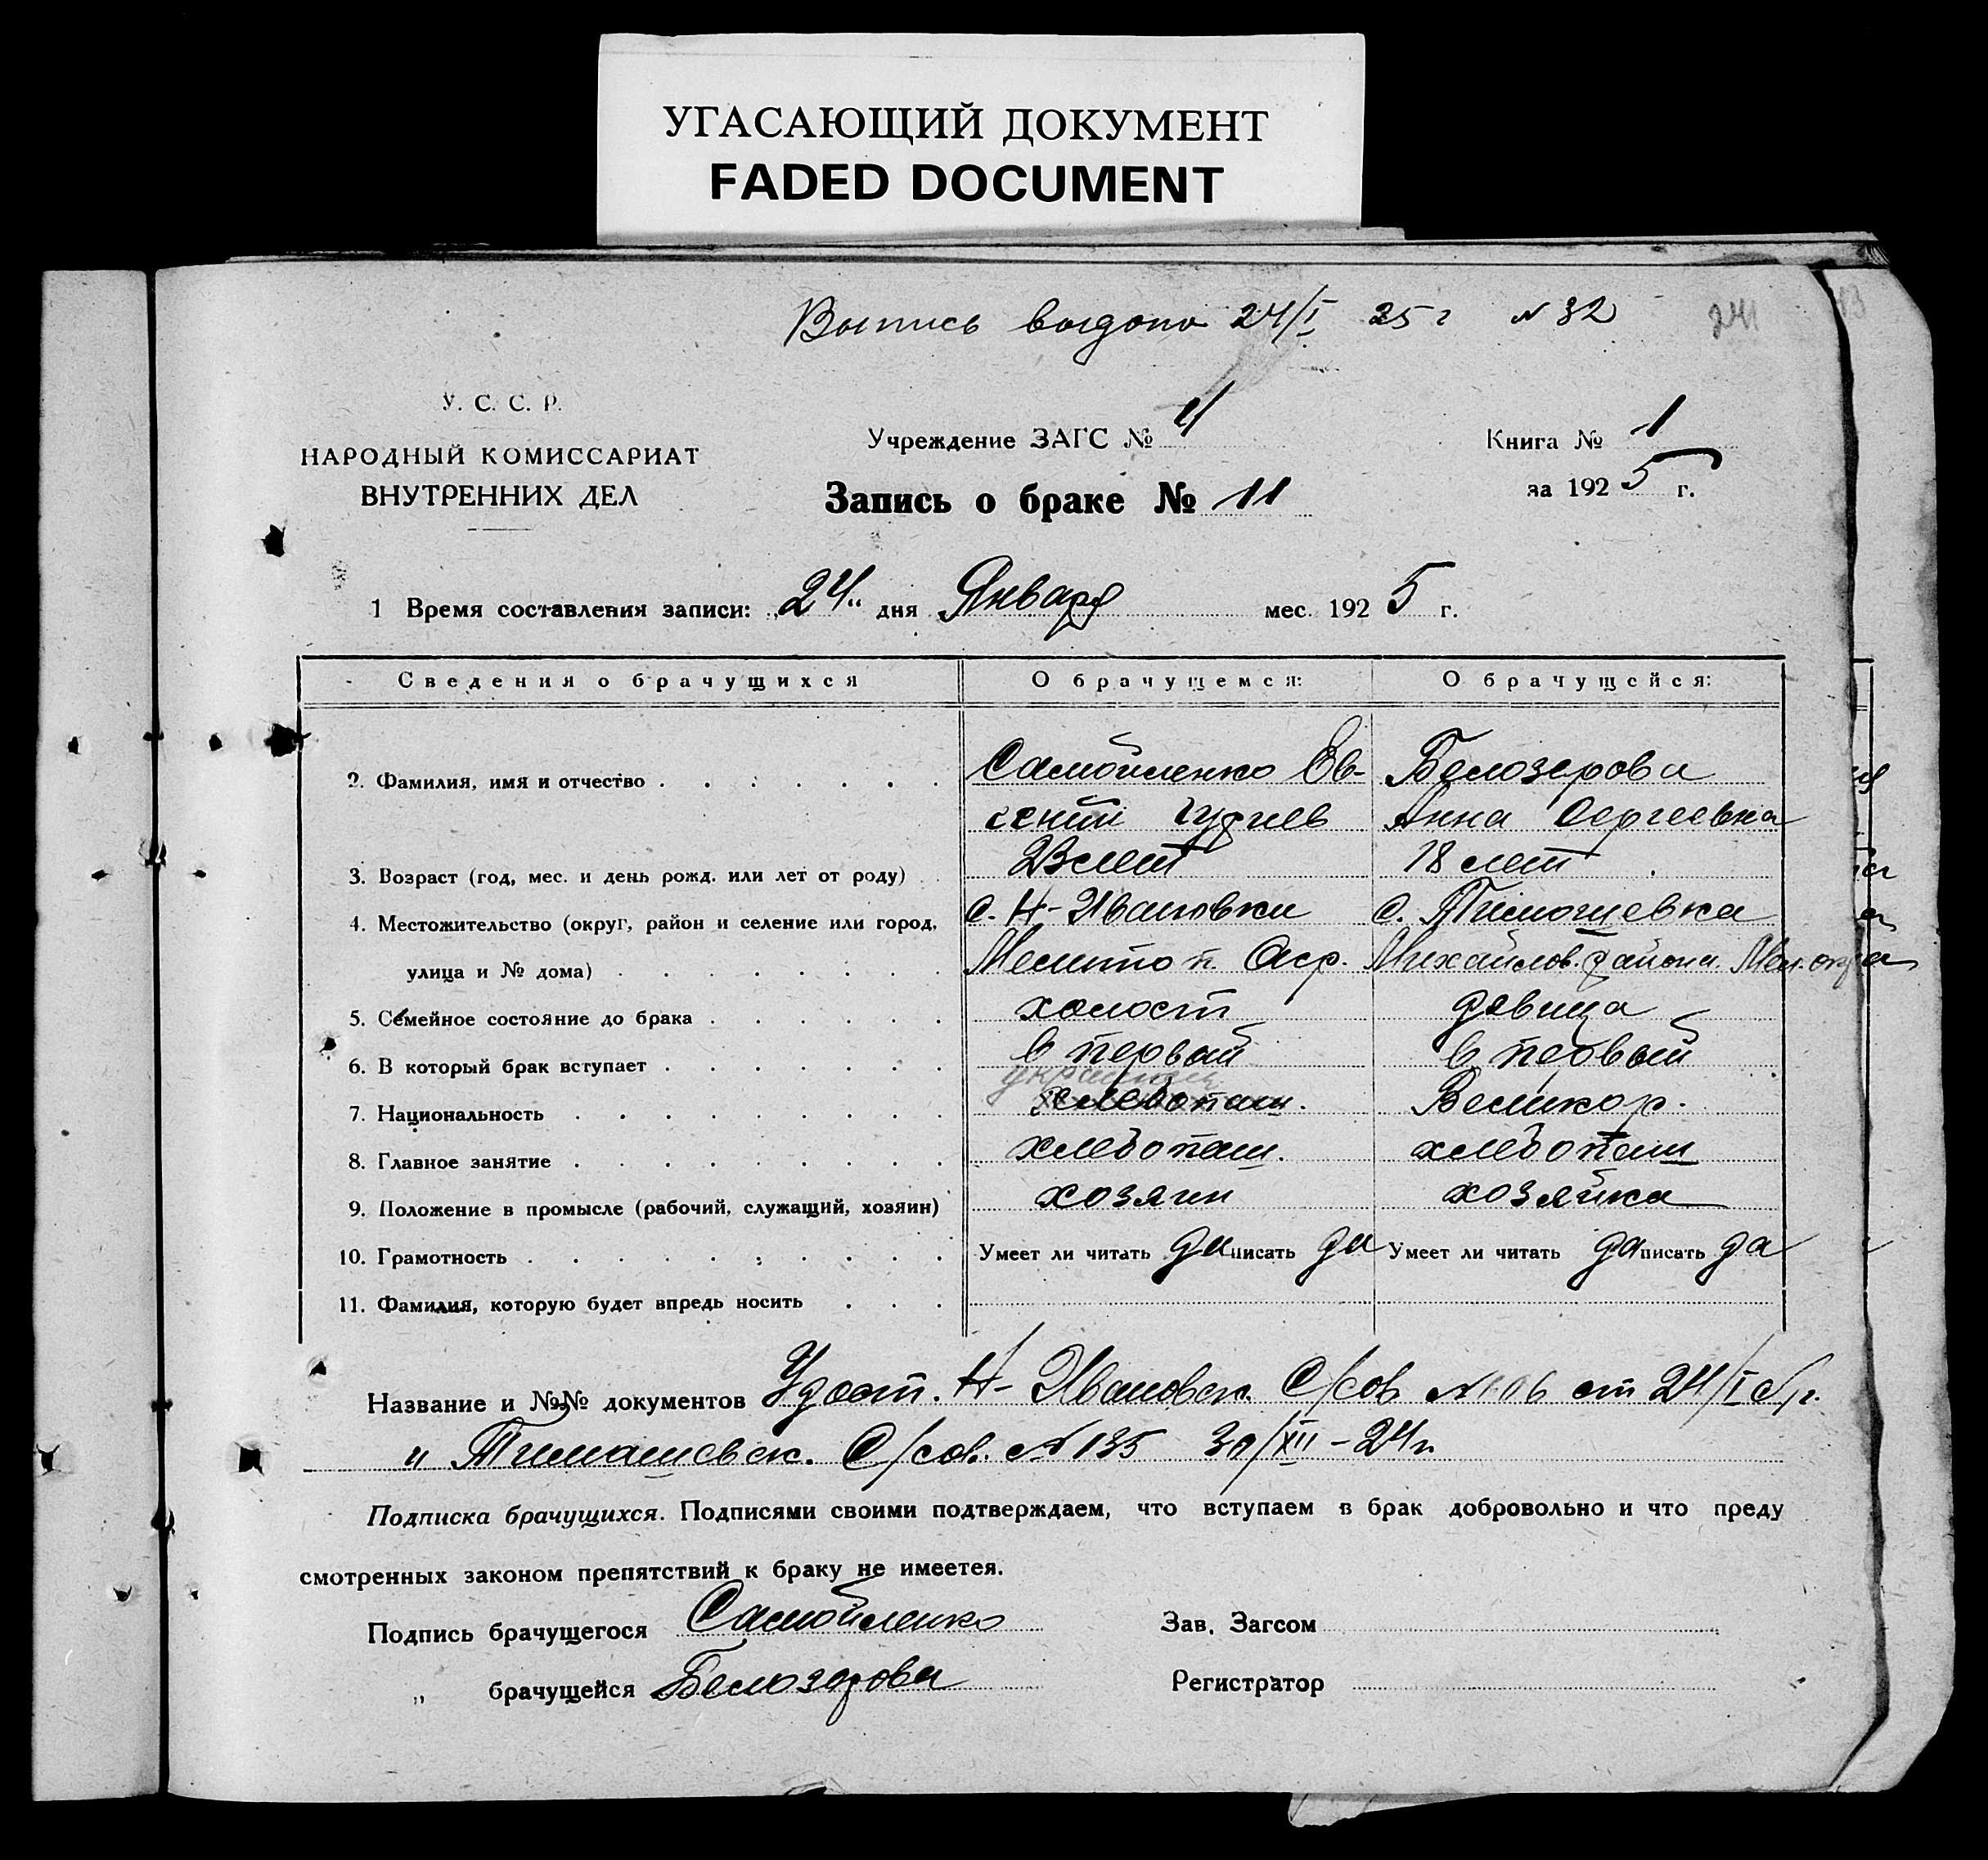 УГАСАЮЩИЙ ДОКУМЕНТ
FADED DOCUMENT
Выпись выдана 24/I 25 г N 32
241
У. С. С. Р.
НАРОДНЫЙ КОМИССАРИАТ
ВНУТРЕННИХ ДЕЛ
Учреждение ЗАГС №
Книга № 1
за 1925 г.
Запись о браке № 11
1 Время составления записи: „24“ дня Января мес. 1925 г.
Сведения о брачущихся О брачущемся: О брачущейся:
2. Фамилия, имя и отчество Самойленко Ев- Белозерова
сений Анна Сергеевна
3. Возраст (год, мес. и день рожд. или лет от роду) 23 лет 18 лет
4. Местожительство (округ, район и селение или город, с. Н-Ивановки с. Тимошевка
улица и № дома) Мелитоп. Окр. Михайлов. района Мел. окр
5. Семейное состояние до брака холост девица
6. В который брак вступает в первый в первый
украинец
7. Национальность хлебопаш. Великор.
8. Главное занятие хлебопаш. хлебопаш
9. Положение в промысле (рабочий, служащий, хозяин) хозяин хозяйка
10. Грамотность Умеет ли читать да писать да Умеет ли читать да писать да
11. Фамилия, которую будет впредь носить
Название и №№ документов Удост. Н-Ивановск. С/сов N 106 от 24/I
" Тимашевск. С/сов. N 135 30/XII-24 г.
Подписка брачущихся. Подписями своими подтверждаем, что вступаем в брак добровольно и что преду
смотренных законом препятствий к браку не имеетея.
Подпись брачущегося Самойленко Зав. Загсом
„ брачущейся Белозерова Регистратор